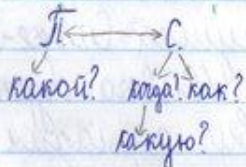 П С
какой? когда? как?
какую?